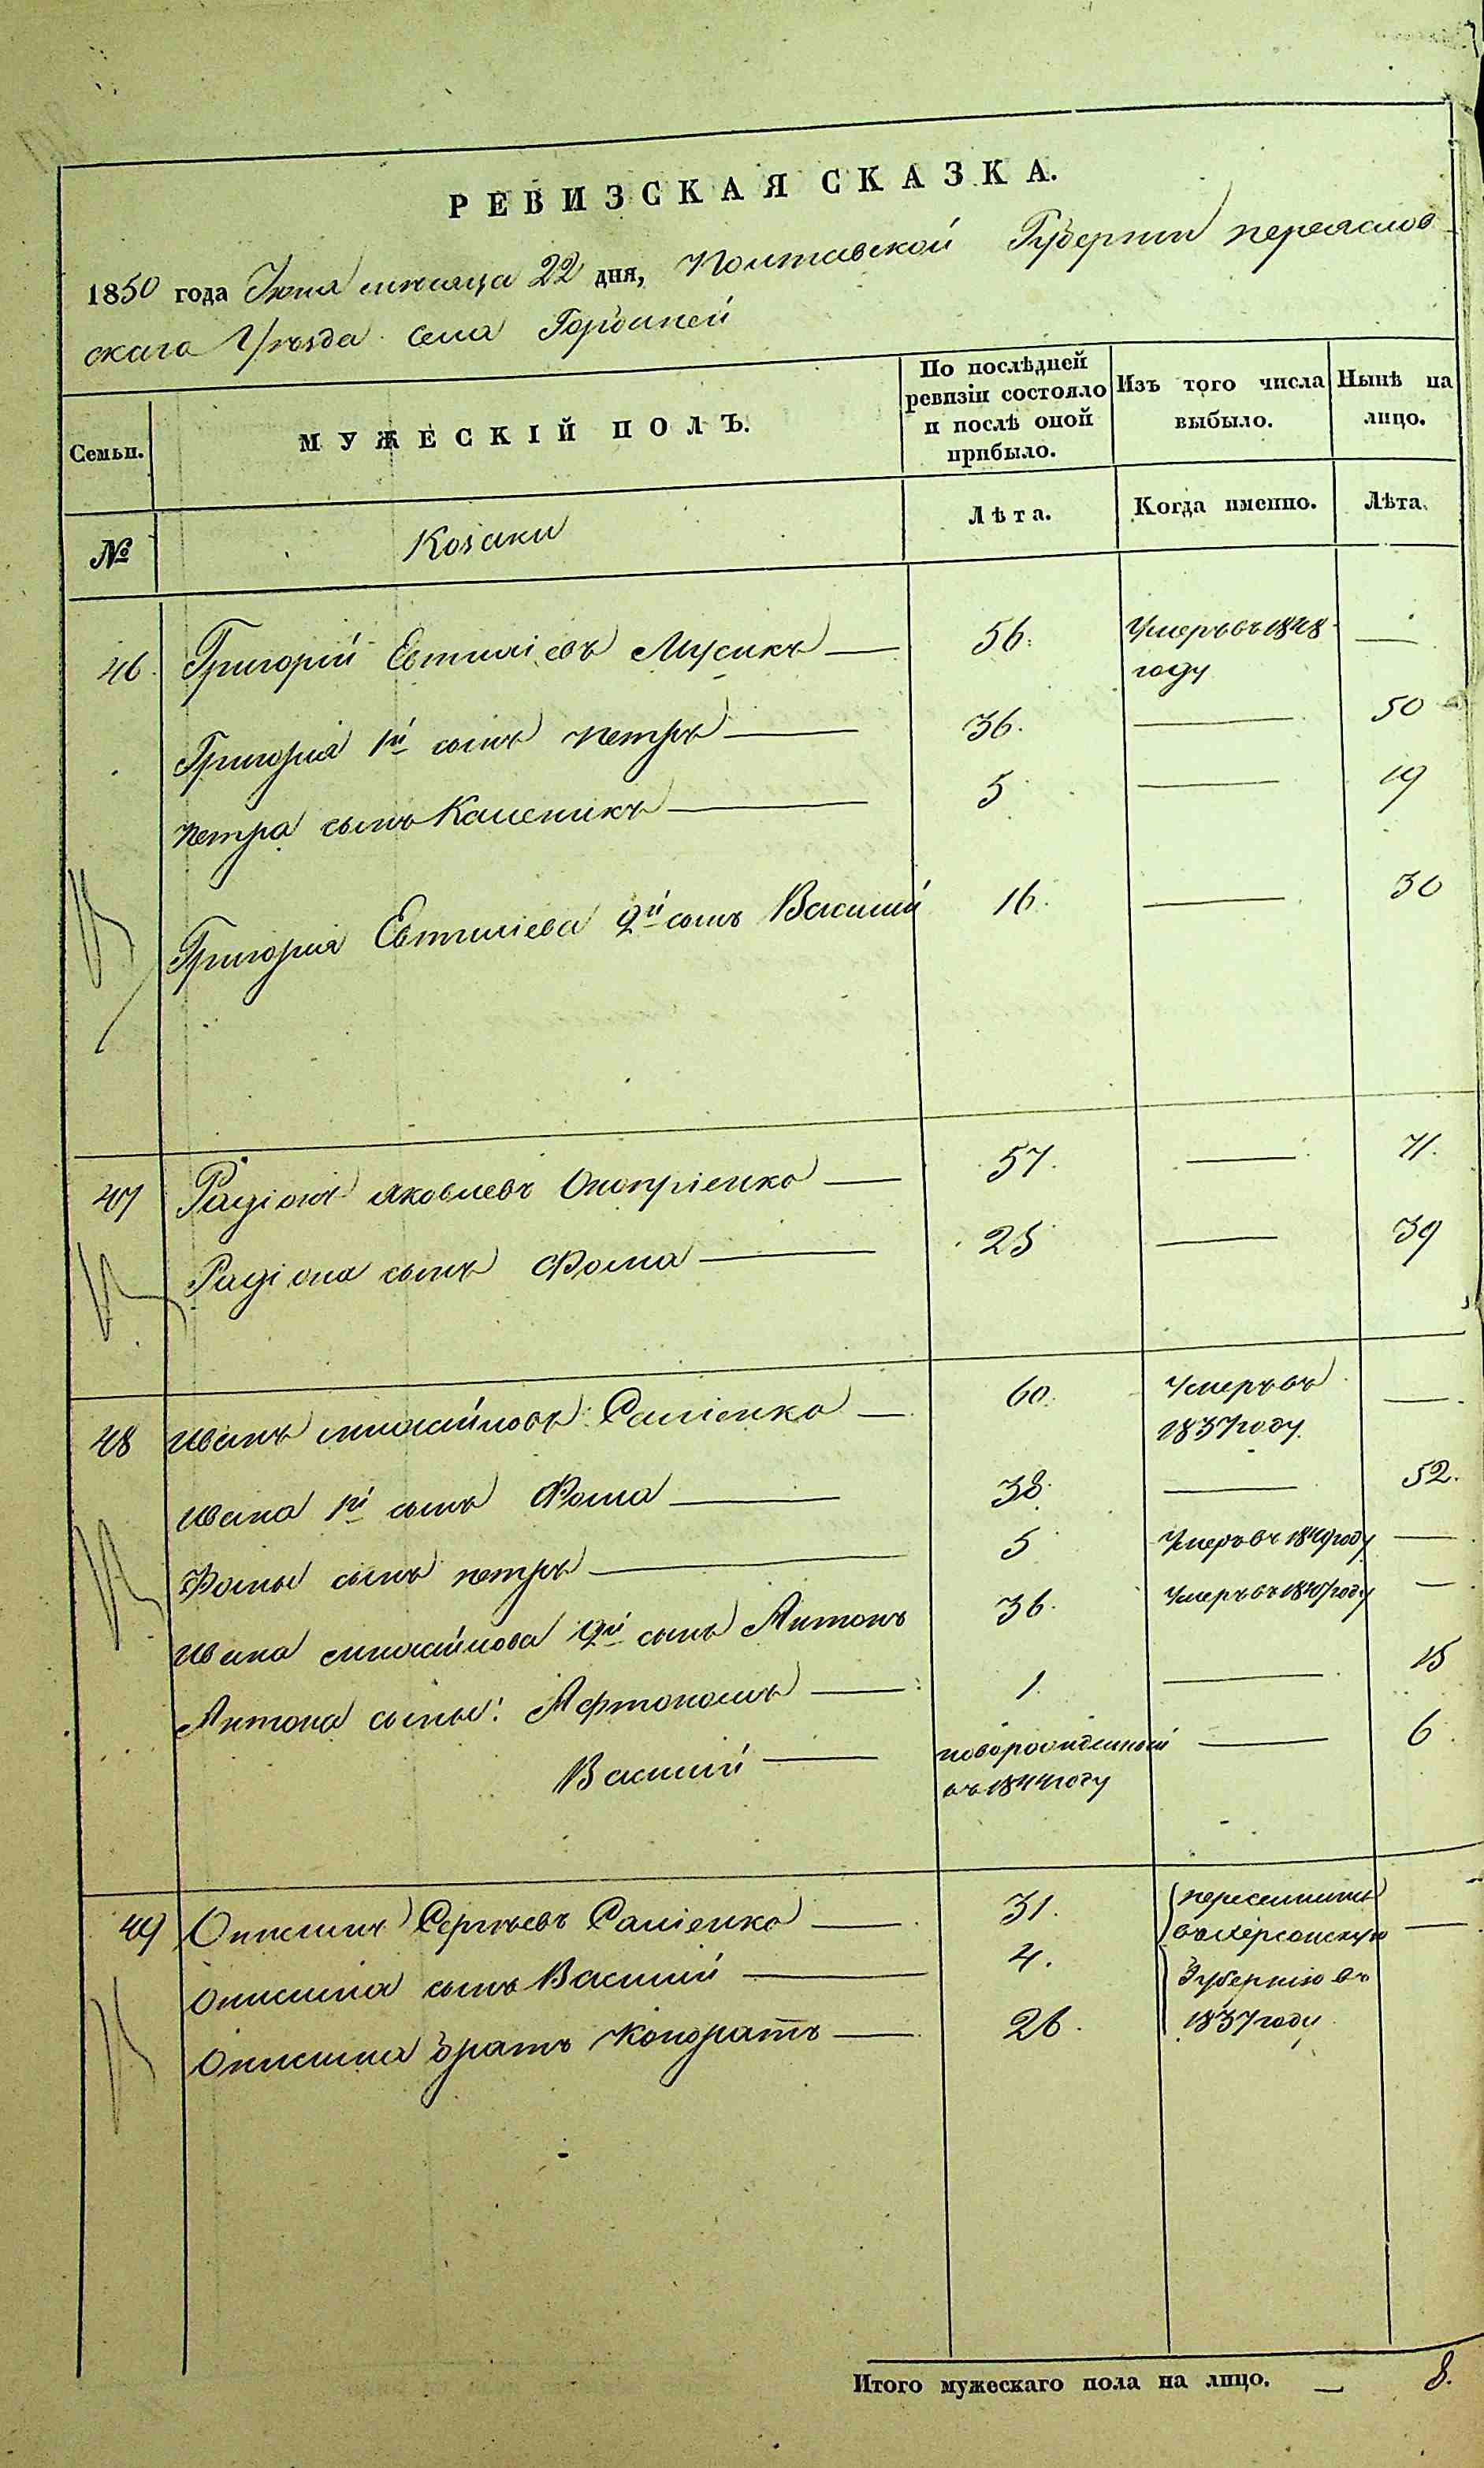 РЕВИЗСКАЯ СКАЗКА.
1850 года Июня мѣсяца 22 дня, Полтавской Губернии переяслов
скаго Уѣзда села Горбаней
Семьи.
МУЖЕСКІЙ ПОЛЪ.
По послѣдней ревизіи состояло и послѣ оной прибыло.
Изъ того числа выбыло.
Нынѣ на лицо.
№
Козаки
Лѣта.
Когда именно.
Лѣта.
46 Григорій Евтихіевъ Мусикъ — 56. Умеръ въ 1848 году —
Григорія 1й сынъ петръ — 36. — 50
петра сынъ Каленикъ — 5 — 19
Григорія Евтихіева 2й сынъ Василий 16. — 30
47 Радіонъ яковлевъ Оноприенко — 57. — 71.
Радіона сынъ Фома — 25 — 39
48 иванъ михайловъ Саліенко — 60. Умеръ въ 1837 году —
ивана 1й сынъ Фома — 38. — 52.
Фомы сынъ петръ — 5 Умеръ въ 1849 году —
ивана михайлова 2й сынъ Антонъ 36. Умеръ въ 1847 году —
Антона сыны: Афтономъ — 1. — 15
Василий — новорожденный въ 1844 году — 6
49 Онисимъ Сергѣевъ Саліенко — 31. переселины въ Херсонскую Губернію въ 1837 году —
Онисима сынъ Василий — 4.
Онисима братъ Кондратъ — 26.
Итого мужескаго пола на лицо. — 8.